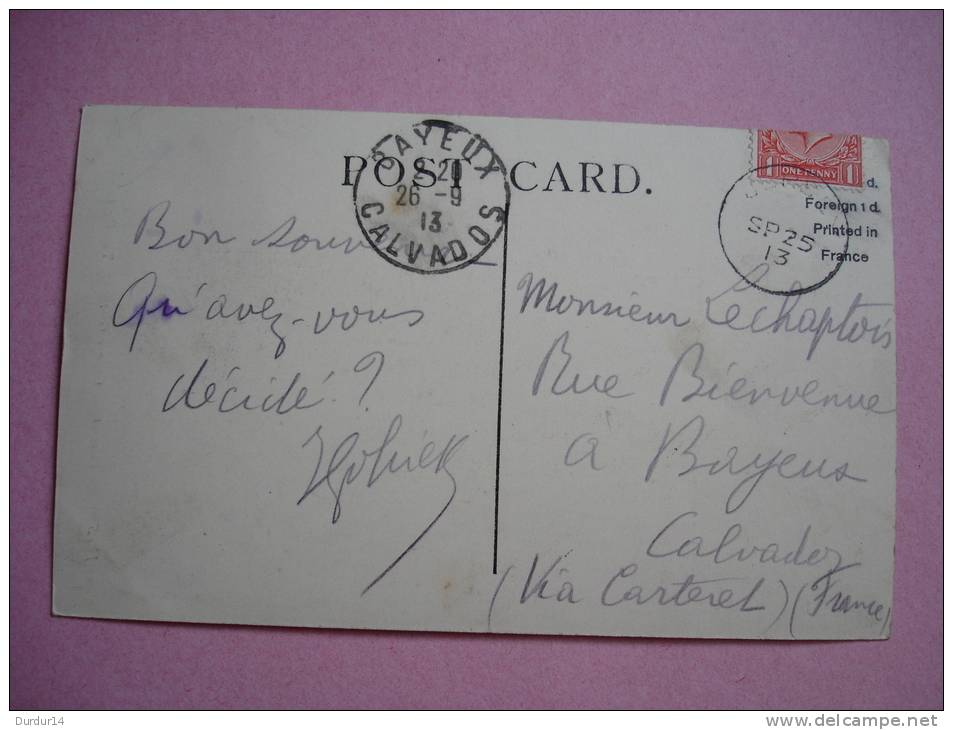 POST CARD.
BAYEUX
2 20
26 - 9
13
CALVADOS
1 ONE PENNY 1
d.
Foreign 1 d.
Printed in
France
SP 25
13
Bon
Qu'avez-vous
décidé ?
Monsieur Lechaptois
Rue Bienvenue
à Bayeux
Calvados
(Via Carteret) (France)
Durdur14
www.delcampe.net